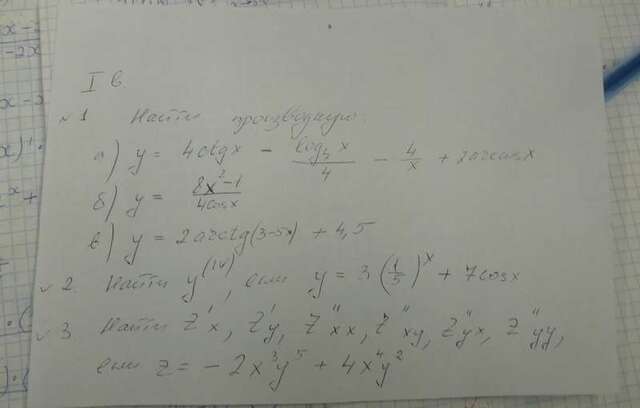 I в.
№1 Найти производную:
а) y = 4ctgx - log₄x/4 - 4/x + 2arccosx
б) y = 8x²-1/4cosx
в) y = 2arctg(3-5x) + 4,5
№2. Найти y⁽ⁱᵛ⁾, если y = 3(1/5)ˣ + 7cosx
№3 Найти z'x, z'y, z"xx, z"xy, z"yx, z"yy,
если z = -2x³y⁵ + 4x⁴y²